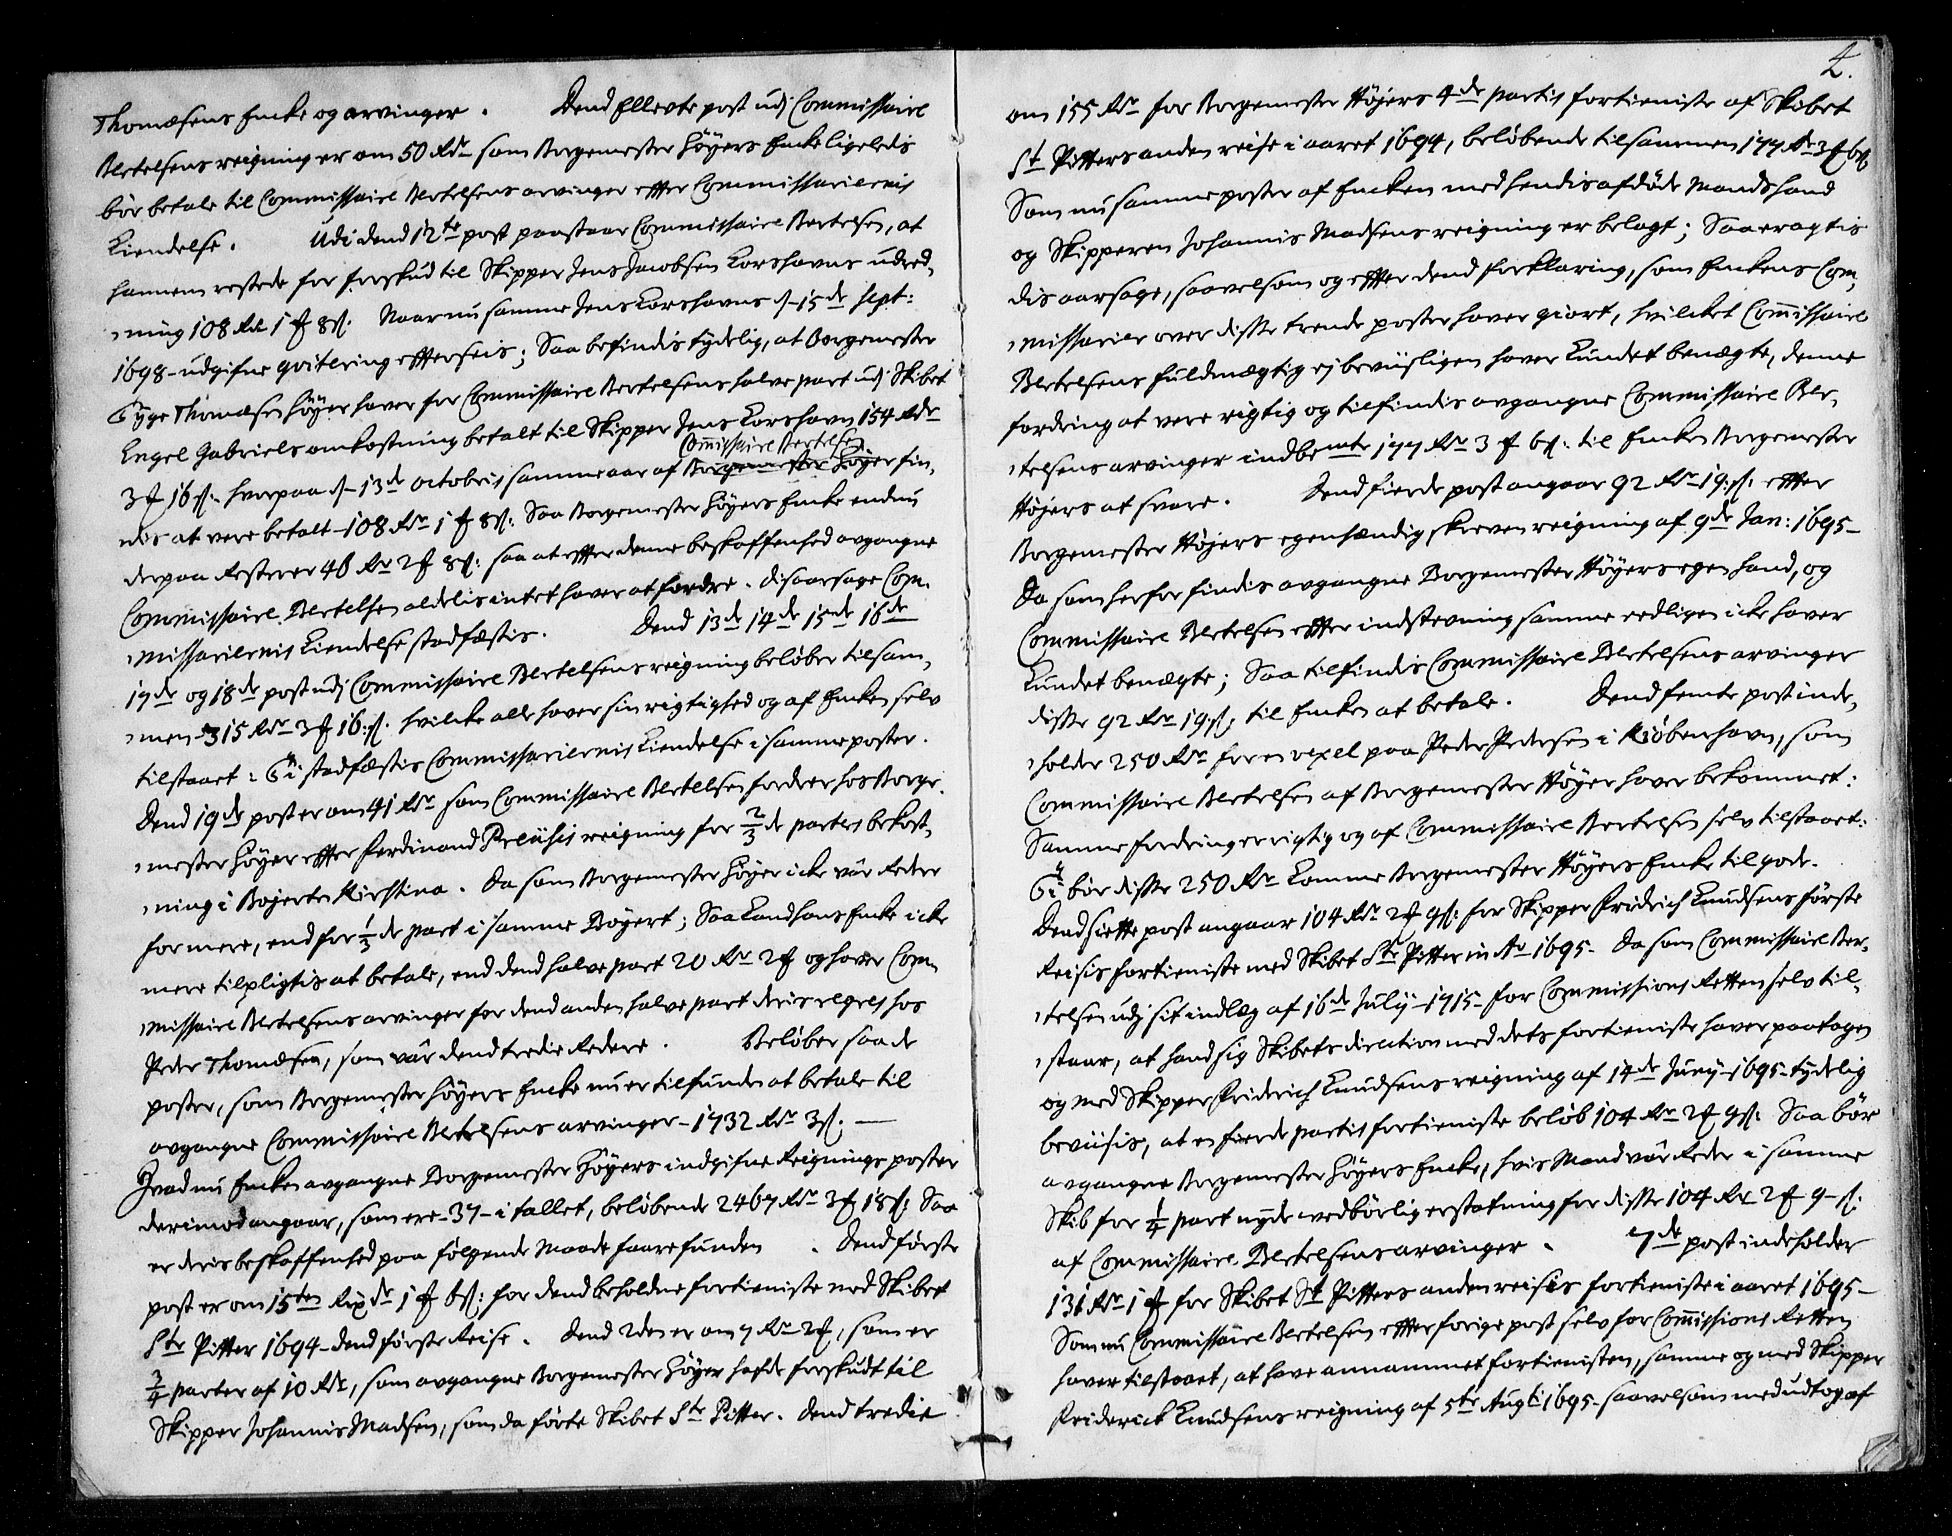 Thomæsens Encke og arvinger. Dend Ellevte post udj Commissaire
Bertelsens reigning er om 50 Rdr som Borgemester Höyers Encke ligeledis
bör betale til Commissaire Bertelsens arvinger effter Commissariernis
Kiendelse. Udi dend 12te post paastaar Commissaire Bertelsen, at
hannem restede for forskud til Skipper Jens Jacobsen Korshavns udred¬
ning 108 Rdr 1 ℔ 8 ß. Naar nu samme Jens Korshavns d. 15de Sept:
1698 udgifne qvitering effterseis; Saa befindis tydelig, at Borgemester
Tyge Thomæsen Höyer haver for Commissaire Bertelsens halve part udj Skibet
Engel Gabriels omkostning betalt til Skipper Jens Korshavn 154 Rdr
Commissaire Bertelsen
3 ℔ 16 ß. hvorpaa d. 13de octobris samme aar af Borgemester Höyer fin¬
dis at vere betalt 108 Rdr 1 ℔ 8 ß: Saa Borgemester Höyers Encke endnu
derpaa Resterer 46 Rdr 2 ℔ 8 ß: saa at effter denne beskaffenhed avgangne
Commissaire Bertelsen aldelis intet haver at fordre. disaarsage Com¬
missariernis Kiendelse stadfæstis. Dend 13de 14de 15de 16de
17de og 18de post udj Commissaire Bertelsens reigning belöber tilsam¬
men 315 Rdr 3 ℔ 16 ß. hvilcke alle haver sin rigtighed og af Encken selv
tilstaaet: Thi stadfæstis Commissariernis Kiendelse i samme poster.
Dend 19de post er om 41 Rdr som Commissaire Bertelsen fordrer hos Borge¬
mester Höyer effter Ferdinand Preüsis reigning for 2/3de parters bekost¬
ning i Bojerten Kirstina. Da som Borgemester Höyer icke vâr Reder
for mere, end for 1/3de part i samme Böyert; Saa Kand hans Encke icke
mere tilpligtis at betale, end dend halve part 20 Rdr 2 ℔ og haver Com¬
missaire Bertelsens arvinger for dend anden halve part deris regres hos
Peder Thomæsen, som vâr dend tredie Redere. Belöber saa de
poster, som Borgemester Höyers Encke nu er tilfunden at betale til
avgangne Commissaire Bertelsens arvinger 1732 Rdr 3 ß.
Hvad nu Encken avgangne Borgemester Höyers indgifne Reignings poster
derimod angaar, som ere 37 i tallet, belöbende 2467 Rdr 3 ℔ 18 ß: Saa
er deris beskaffenhed paa fölgende Maade faarefunden. Dend förste
post er om 15ten Rixdr 1 ℔ 6 ß: for dend beholdne fortieniste med Skibet
Ste Pitter 1694 dend förste Reise. Dend 2den er om 7 Rdr 2 ℔, som er
3/4 parter af 10 Rdr, som avgangne Borgemester Höyer hafde forskudt til
Skipper Johannis Madsen, som da förte Skibet Ste Pitter. Dend tredie
2.
om 155 Rdr for Borgemester Höjers 4de partis fortieniste af Skibet
St Pitters anden reise i aaret 1694, belöbende tilsammen 177 Rdr 3 ℔ 6 ß
Som nu samme poster af Encken med hendis afdöde Mands haand
og Skipperen Johannis Madsens reigning er belagt; Saa eragtis
dis aarsage, saavelsom og effter dend forklaring, som Enckens Com¬
missarier over disse trende poster haver giort, hvilcket Commissaire
Bertelsens fuldmægtig ej beviisligen haver Kundet benægte, denne
fordring at vere rigtig og tilfindis avgangne Commissaire Ber¬
telsens arvinger indbemte 177 Rdr 3 ℔ 6 ß: til Encken Borgemester
Höjers at svare. Dend fierde post angaar 92 Rdr 19 ß: effter
Borgemester Höjers egenhændig skreven reigning af 9de Jan: 1695
Da som herfor findis avgangne Borgemester Höyers egen haand, og
Commissaire Bertelsen effter indstevning samme eedligen icke haver
Kundet benægte; Saa tilfindis Commissaire Bertelsens arvinger
disse 92 Rdr 19 ß, til Encken at betale. Dend femte post inde¬
holder 250 Rdr for en vexel paa Peder Pedersen i Kiöbenhavn, som
Commissaire Bertelsen af Borgemester Höyer haver bekommet:
Samme fordring er rigtig og af Commissaire Bertelsen selv tilstaaet:
Thi bör disse 250 Rdr komme Borgemester Höyers Encke til gode.
Dend siette post angaar 104 Rdr 2 ℔ 9 ß: for Skipper Fridrich Knudsens förste
Reisis fortieniste med Skibet Ste Pitter in Ao 1695. Da som Commissaire Ber¬
telsen udj sit indlæg af 16de July 1715 for Commissions Retten selv til¬
staar, at hand sig Skibets direction med dets fortieniste haver paatagen
og med Skipper Friderich Knudsens reigning af 14de Juny 1695 tydelig
beviisis, at en fierde partis fortieniste belöb 104 Rdr 2 ℔ 9 ß: Saa bör
avgangne Borgemester Höyers Encke, hvis Mand vâr Reder i samme
Skib for 1/4 part nyde vedbörlig erstatning for disse 104 Rdr 2 ℔ 9 ß.
af Commissaire Bertelsens arvinger. 7de post indeholder
131 Rdr 1 ℔ for Skibet St Pitters anden reises fortieniste i aaret 1695
Som nu Commissaire Bertelsen effter forige post selv for Commissions Retten
haver tilstaaet, at have annammet fortienisten, samme og med Skipper
Friderick Knudsens reigning af 5te Augti 1695 saavelsom med udtog af